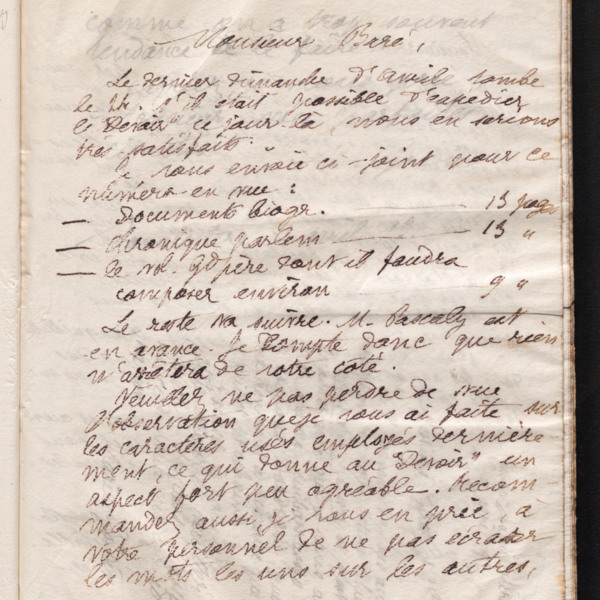 Monsieur Baré,
Le dernier dimanche d'avril tombe
le 24. S'il était possible d'expédier
le "Devoir" ce jour-là, nous en serions
très satisfaits.
Je vous envoie ci-joint pour ce
numéro en vue :
— Documents biogr. 13 pages
— Chronique parlem 13 "
— le vol. Gd père dont il faudra
composer environ 9 "
Le reste va suivre. M. Pascaly est
en avance. Je compte donc que rien
n'arrêtera de votre côté.
Veuillez ne pas perdre de vue
l'observation que je vous ai faite sur
les caractères usés employés dernière-
ment, ce qui donne au "Devoir" un
aspect fort peu agréable. Recom-
mandez aussi, je vous en prie, à
votre personnel de ne pas écraser
les mots les uns sur les autres,